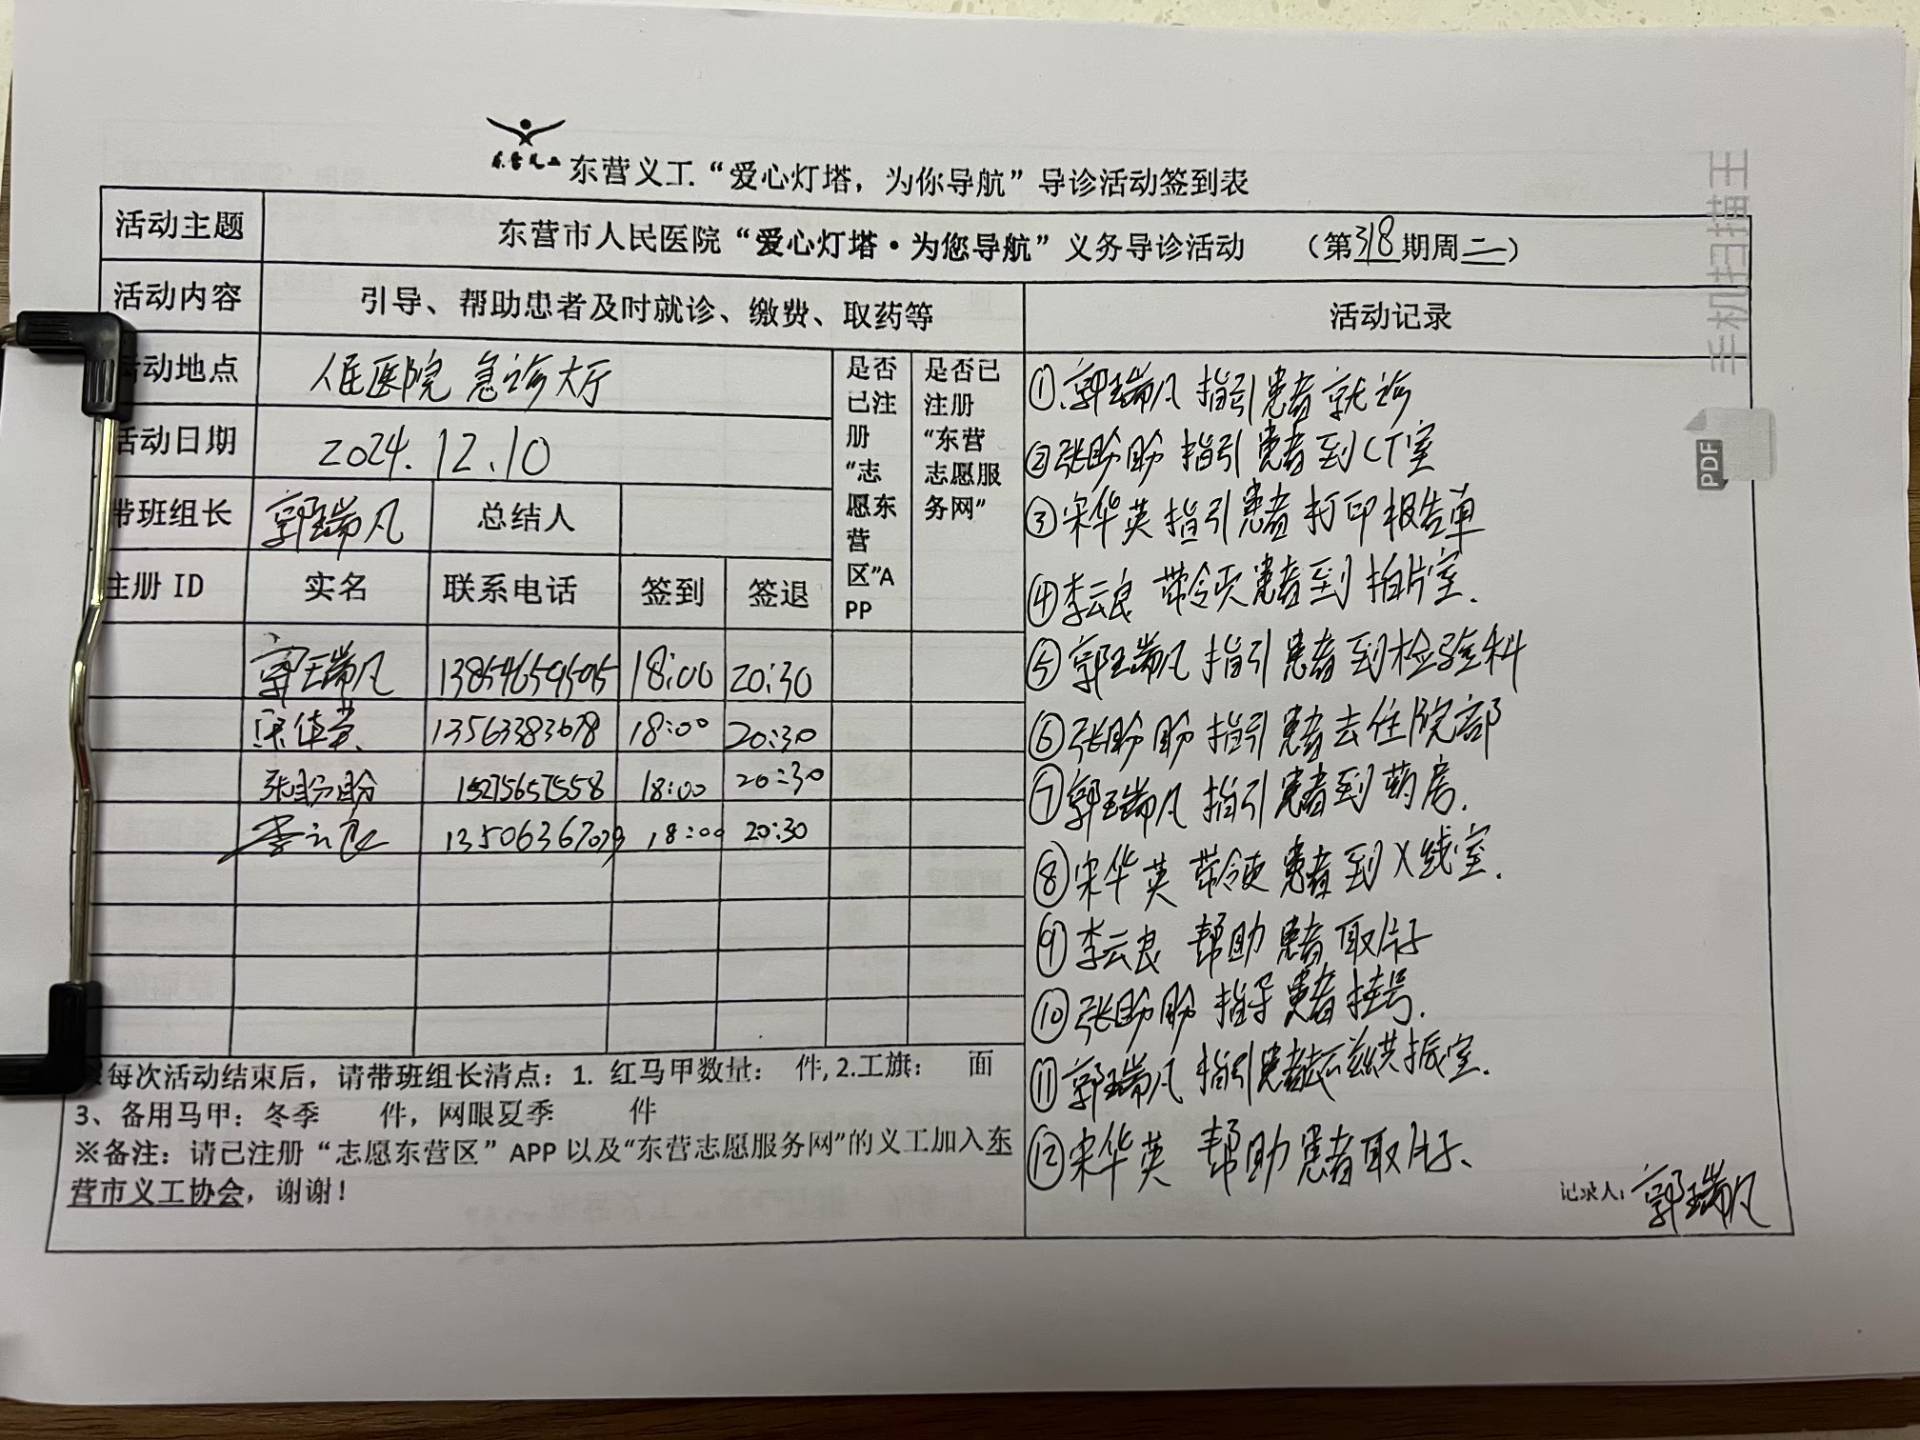 东营义工 东营义工“爱心灯塔，为你导航”导诊活动签到表
活动主题 东营市人民医院“爱心灯塔·为您导航”义务导诊活动 （第318期周二）
活动内容 引导、帮助患者及时就诊、缴费、取药等 活动记录
活动地点 人民医院 急诊大厅
活动日期 2024.12.10
带班组长 郭瑞凡 总结人
是否已注册“志愿东营区”APP
是否已注册“东营志愿服务网”
注册 ID 实名 联系电话 签到 签退
郭瑞凡 13854659595 18:00 20:30
宋华英 13563383678 18:00 20:30
张盼盼 15275657558 18:00 20:30
李云良 13506367079 18:00 20:30
①郭瑞凡 指引患者就诊
②张盼盼 指引患者到CT室
③宋华英 指引患者打印报告单
④李云良 带领患者到拍片室.
⑤郭瑞凡 指引患者到检验科
⑥张盼盼 指引患者去住院部
⑦郭瑞凡 指引患者到药房.
⑧宋华英 带领患者到X线室.
⑨李云良 帮助患者取片子
⑩张盼盼 指导患者挂号.
⑪郭瑞凡 指引患者去磁共振室.
⑫宋华英 帮助患者取片子、
记录人：郭瑞凡
※每次活动结束后，请带班组长清点：1. 红马甲数量： 件, 2.工旗： 面
3、备用马甲：冬季 件，网眼夏季 件
※备注：请已注册“志愿东营区”APP 以及“东营志愿服务网”的义工加入东
营市义工协会，谢谢！
手机扫描王
PDF